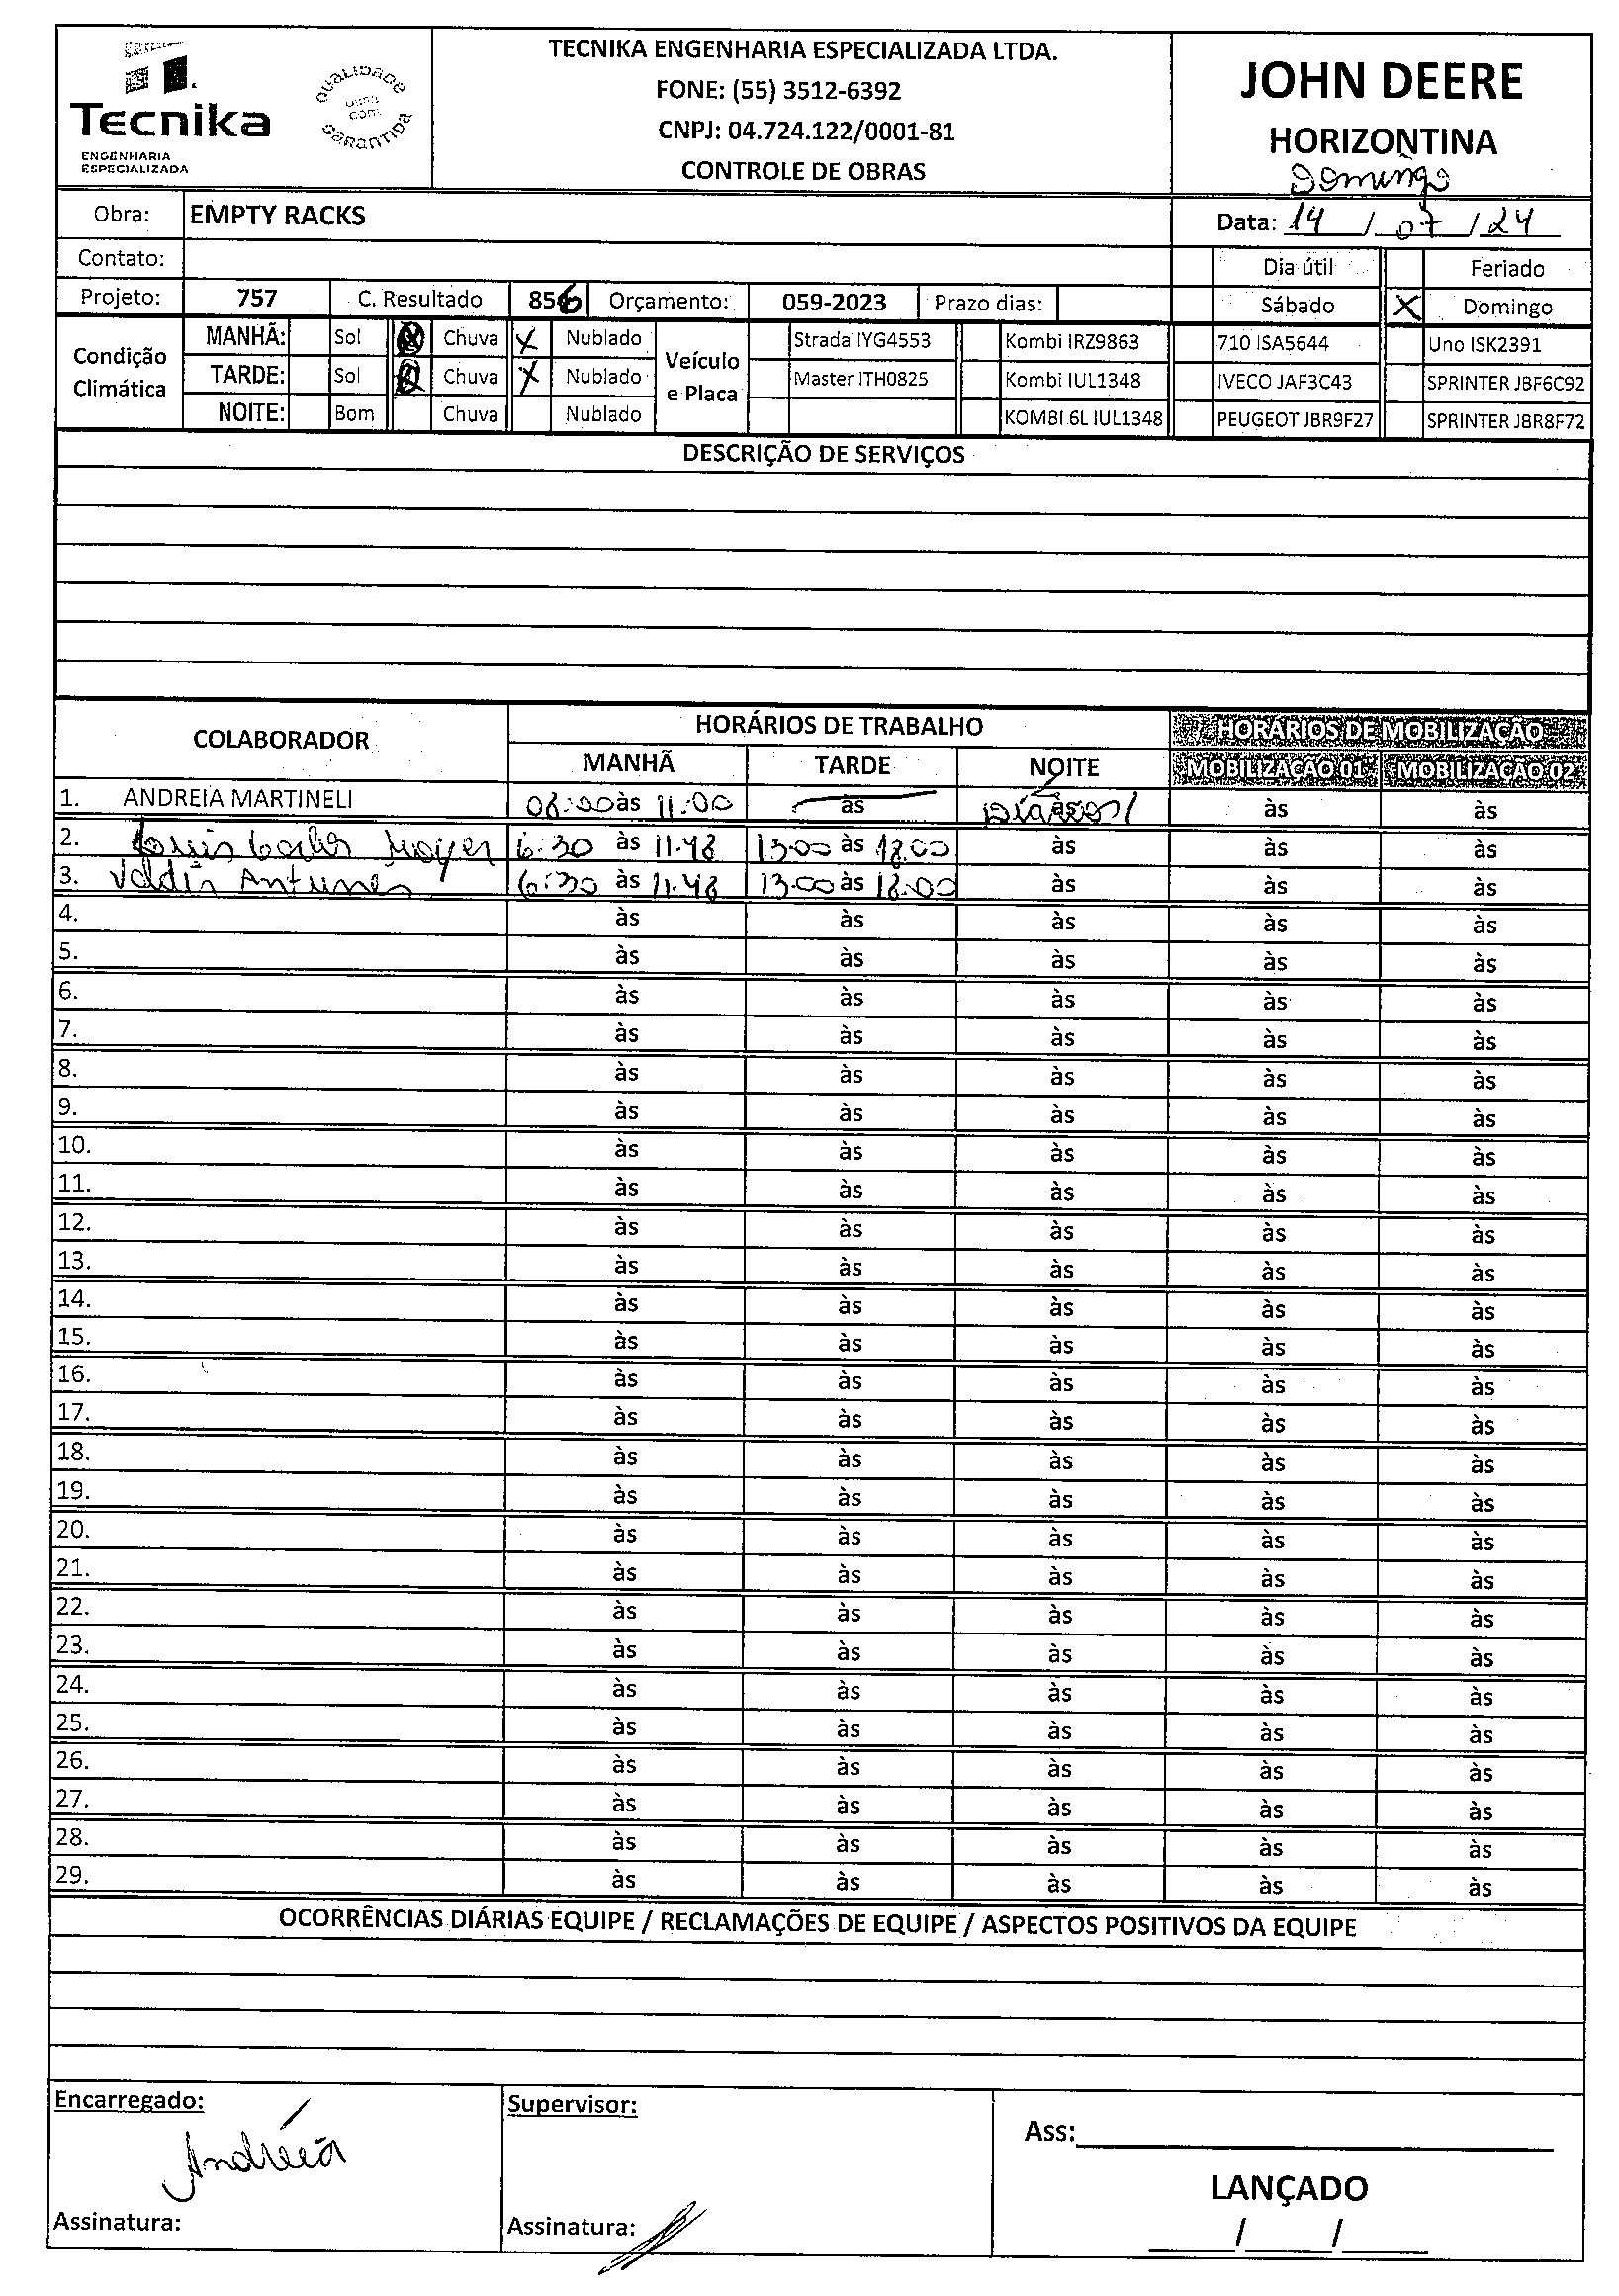 Tecnika
ENGENHARIA
ESPECIALIZADA
QUALIDADE
GARANTIDA
TECNIKA ENGENHARIA ESPECIALIZADA LTDA.
FONE: (55) 3512-6392
CNPJ: 04.724.122/0001-81
CONTROLE DE OBRAS
JOHN DEERE
HORIZONTINA
Domingo
Obra: EMPTY RACKS
Data: 14/07/24
Contato:
Dia útil Feriado
Projeto: 757 C. Resultado 856 Orçamento: 059-2023 Prazo dias: Sábado X Domingo
Condição Climática
MANHÃ: Sol Chuva X Nublado
TARDE: Sol Chuva X Nublado
NOITE: Bom Chuva Nublado
Veículo e Placa
Strada IYG4553 Kombi IRZ9863 710 ISA5644 Uno ISK2391
Master ITH0825 Kombi IUL1348 IVECO JAF3C43 SPRINTER JBF6C92
KOMBI 6L IUL1348 PEUGEOT JBR9F27 SPRINTER JBR8F72
DESCRIÇÃO DE SERVIÇOS
COLABORADOR HORÁRIOS DE TRABALHO HORÁRIOS DE MOBILIZAÇÃO
MANHÃ TARDE NOITE MOBILIZAÇÃO 01 MOBILIZAÇÃO 02
1. ANDREIA MARTINELI 08:00 às 11:00 às às às às
2. Luis Carlos 6:30 às 11:48 13:00 às 18:00 às às às
3. Valdir Antunes 6:30 às 11:48 13:00 às 18:00 às às às
4. às às às às às
5. às às às às às
6. às às às às às
7. às às às às às
8. às às às às às
9. às às às às às
10. às às às às às
11. às às às às às
12. às às às às às
13. às às às às às
14. às às às às às
15. às às às às às
16. às às às às às
17. às às às às às
18. às às às às às
19. às às às às às
20. às às às às às
21. às às às às às
22. às às às às às
23. às às às às às
24. às às às às às
25. às às às às às
26. às às às às às
27. às às às às às
28. às às às às às
29. às às às às às
OCORRÊNCIAS DIÁRIAS EQUIPE / RECLAMAÇÕES DE EQUIPE / ASPECTOS POSITIVOS DA EQUIPE
Encarregado:
Andréia
Assinatura:
Supervisor:
Assinatura:
Ass:
LANÇADO
/ /